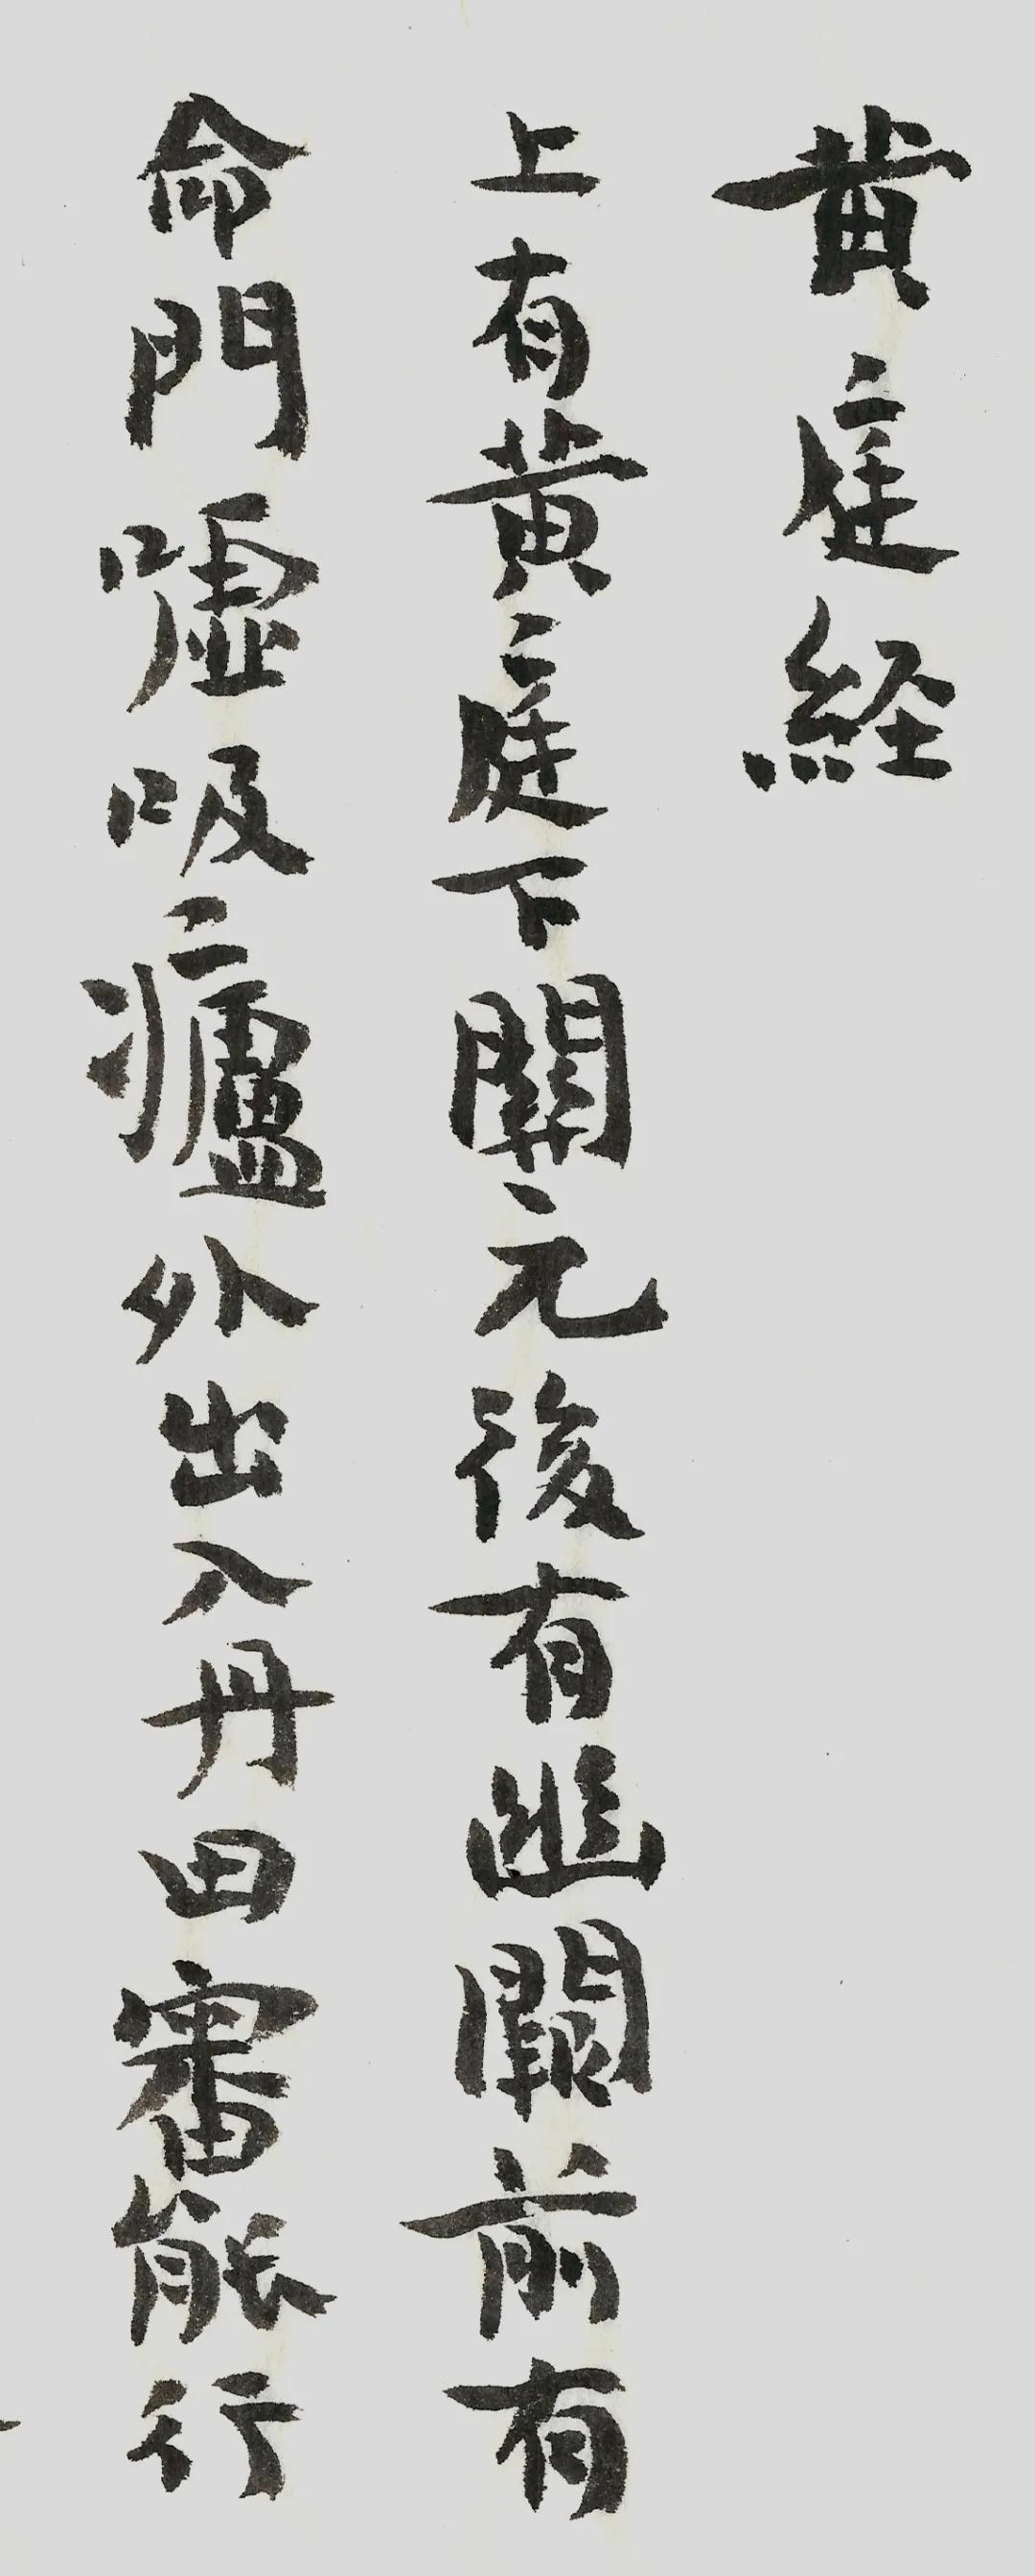 黄庭経
上有黄庭下関元後有幽闕前有
命門嘘吸廬外出入丹田審能行